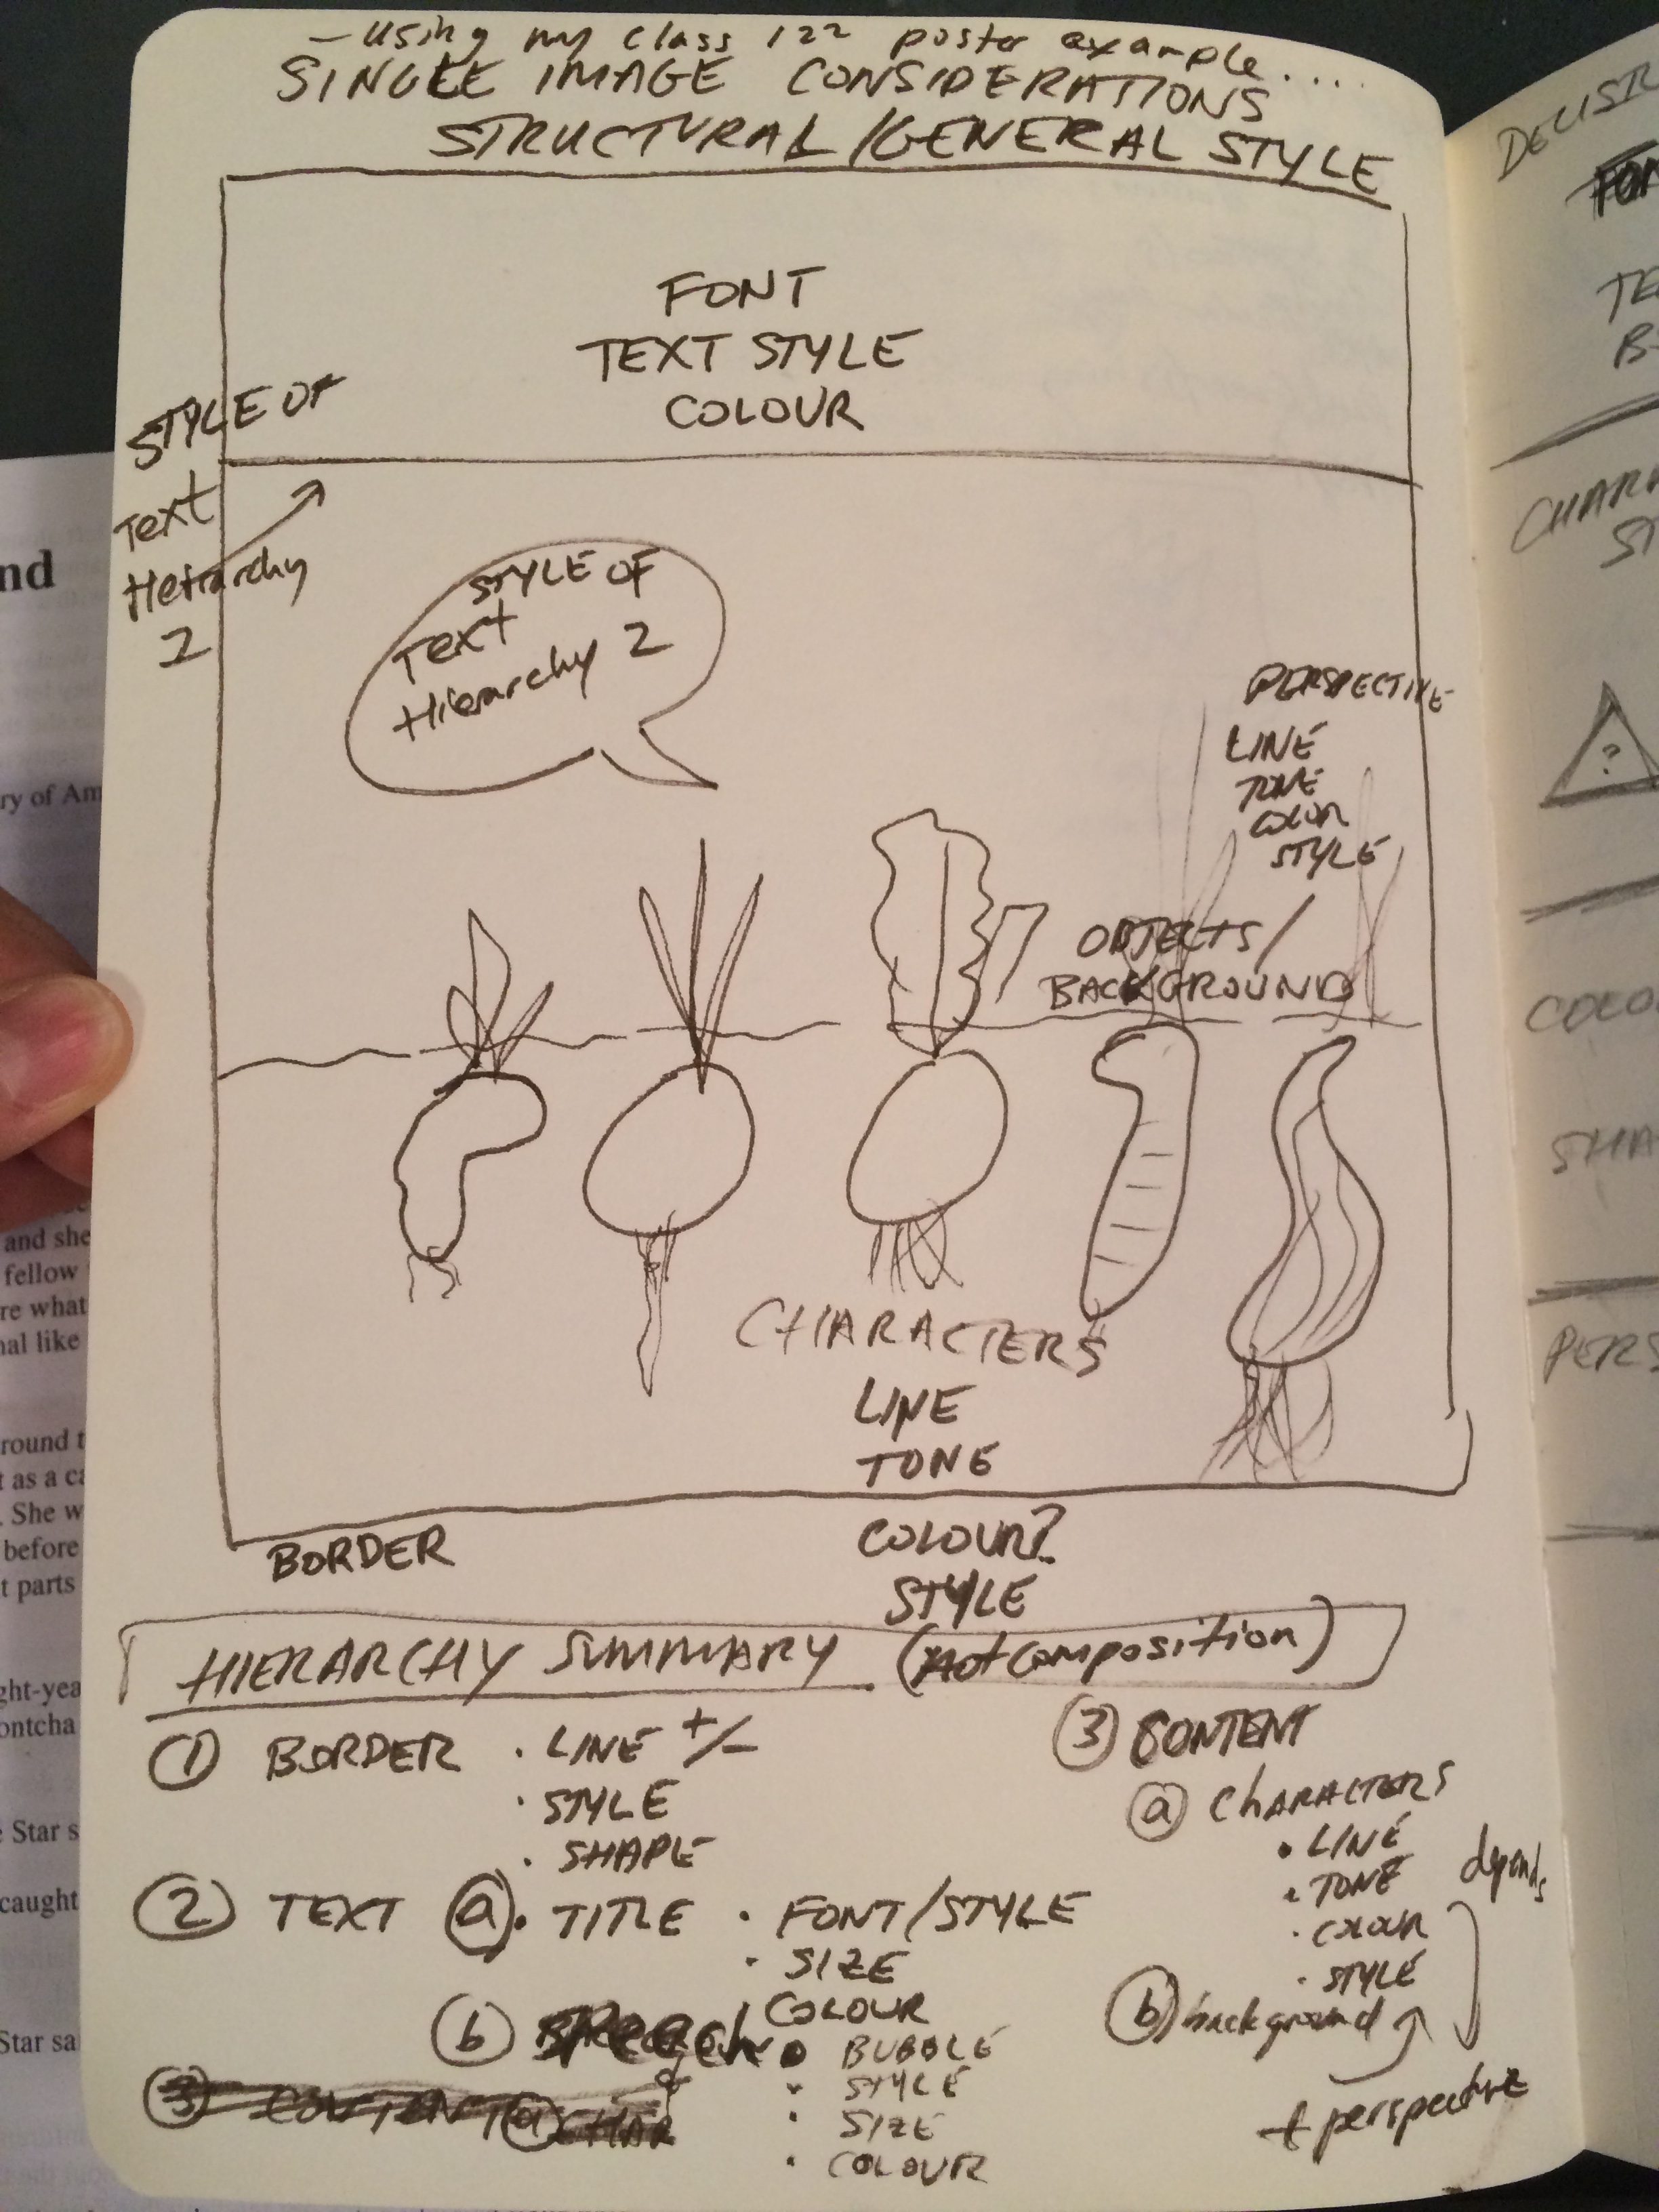 - using my class 122 poster example....
SINGLE IMAGE CONSIDERATIONS
STRUCTURAL/GENERAL STYLE
FONT
TEXT STYLE
COLOUR
STYLE OF
Text
Hetrarchy
2
STYLE OF
Text
Hierarchy 2
PERSPECTIVE
LINE
TONE
COLOR
STYLE
OBJECTS/
BACKGROUND
CHARACTERS
LINE
TONE
COLOUR?
STYLE
BORDER
HIERARCHY SUMMARY (not composition)
① BORDER · LINE +/-
· STYLE
· SHAPE
② TEXT ⓐ · TITLE · FONT/STYLE
· SIZE
COLOUR
ⓑ Speech • BUBBLE
· STYLE
· SIZE
· COLOUR
③ CONTENT ⓐ CHAR
③ CONTENT
ⓐ CHARACTERS
• LINE
• TONE
· COLOUR
· STYLE
depends
ⓑ background
+ perspective
nd
ry of Am
and she
fellow
re what
nal like
round t
t as a ca
. She w
before
t parts
ght-yea
ontcha
Star s
caught
Star sa
TE
B
CHARA
ST
?
COLO
SHA
PERS